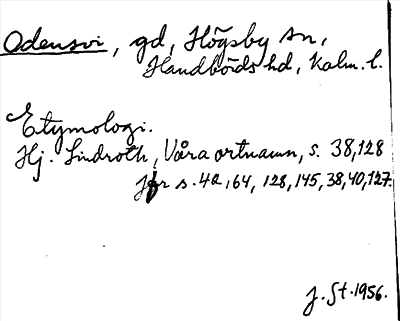 Odensvi, gd, Högsby sn,
Handbörds hd, Kalm. l.
Etymologi.
Hj. Lindroth, Våra ortnamn, s. 38, 128
Jfr s. 42, 64, 128, 145, 38, 40, 127.
J. St. 1956.